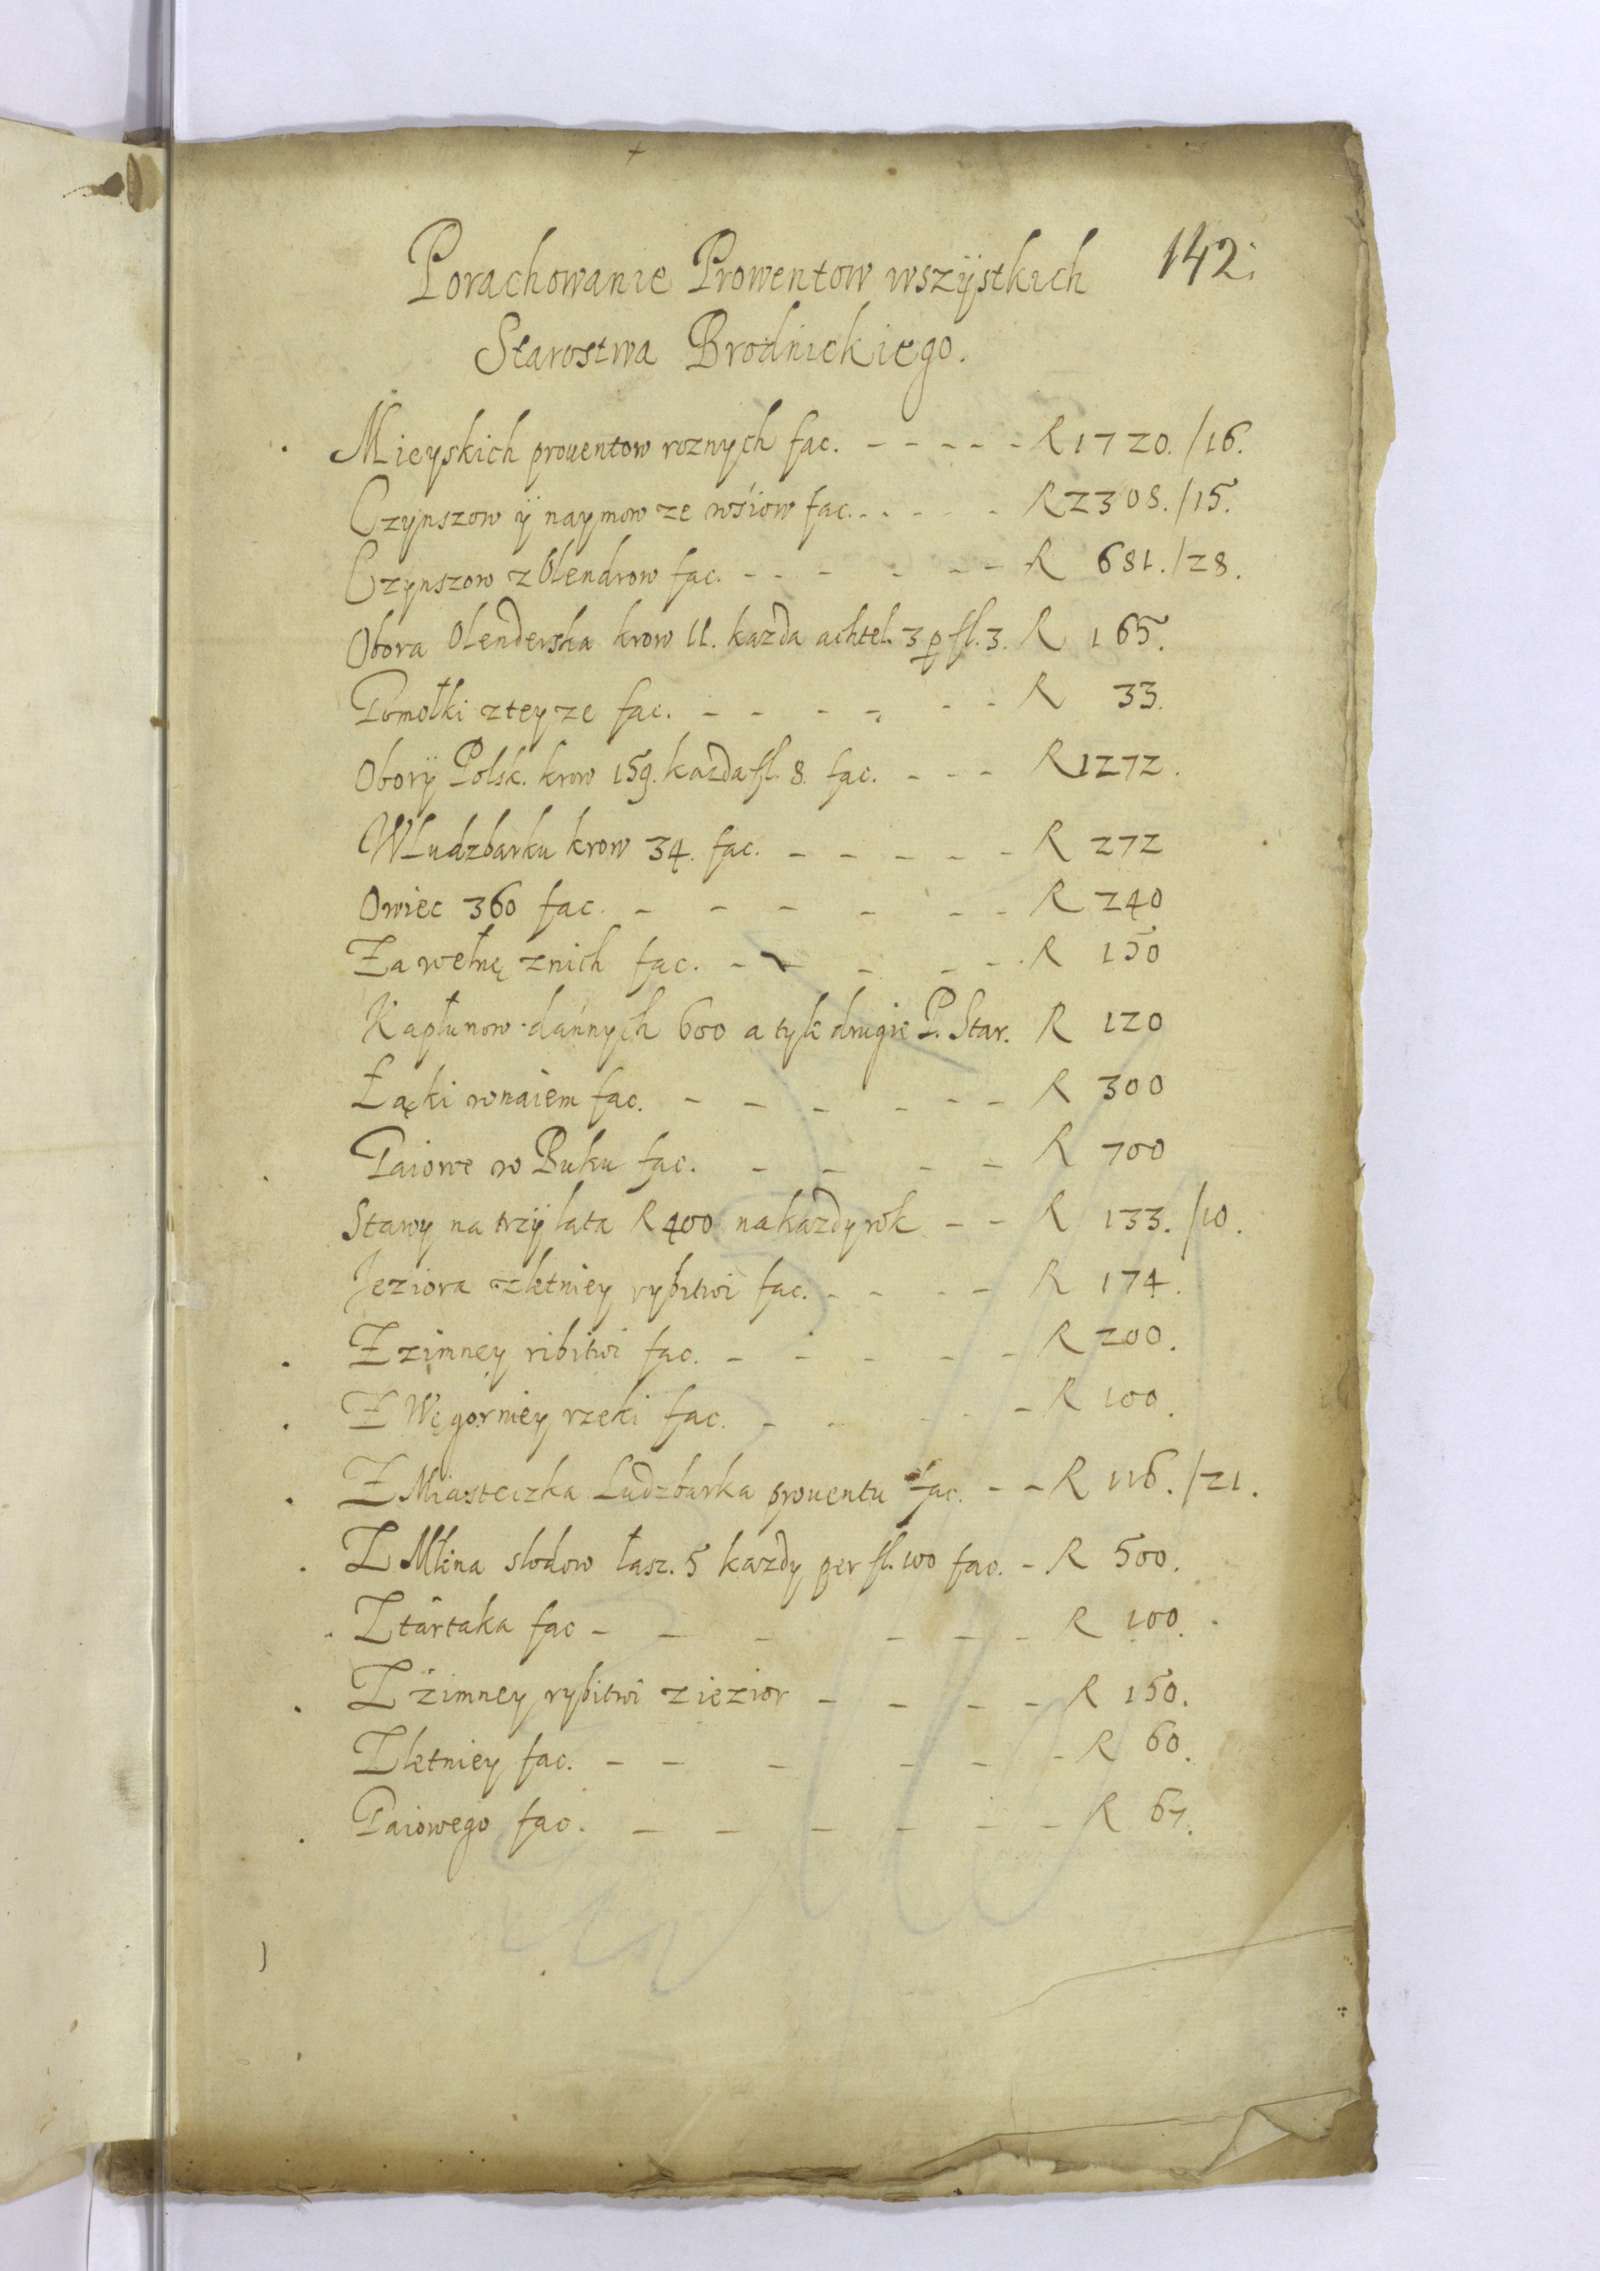 142
Porachowanie Prowentow wszÿstkich
Starostwa Brodnickiego.
Mieyskich prouentow roznych fac. - - - - - R 1720. /16.
Czynszow ÿ naymow ze wśiow fac. - - - - R 2308. /15.
Czynszow z Olendrow fac. - - - - - - R 681. /28.
Obora Olenderska krow 11. kazda achtel. 3 p fl. 3. R 165.
Pomołki z teyze fac. - - - - - - R 33.
Oborÿ Polsk. krow 159. kazda fl. 8. fac. - - - R 1272.
W Ludzbarku krow 34. fac. - - - - - R 272
Owiec 360 fac. - - - - - - R 240
Za wełnę znich fac. - - - - - R 150
Kapłunow dańnych 600 a tyle drugie P. Star. R 120
Łąki w naiem fac. - - - - - - R 300
Paiowe w Buku fac. - - - - R 700
Stawy na trzÿ lata R 400 na kazdy rok - - R 133. /10.
Jeziora z letniey rybitwi fac. - - - - R 174.
Z zimney ribitwi fac. - - - - - R 200.
Z Węgorniey rzeki fac. - - - - - R 100.
Z Miasteczka Ludzbarka prouentu fac. - - R 116. /21.
Z Młina slodow łasz. 5 kazdy per fl. 100 fac. - R 500.
Z tartaka fac - - - - - - R 100.
Z zimney rybitwi z iezior - - - - R 150.
Z letniey fac. - - - - - - R 60.
Paiowego fac. - - - - - - - R 67.